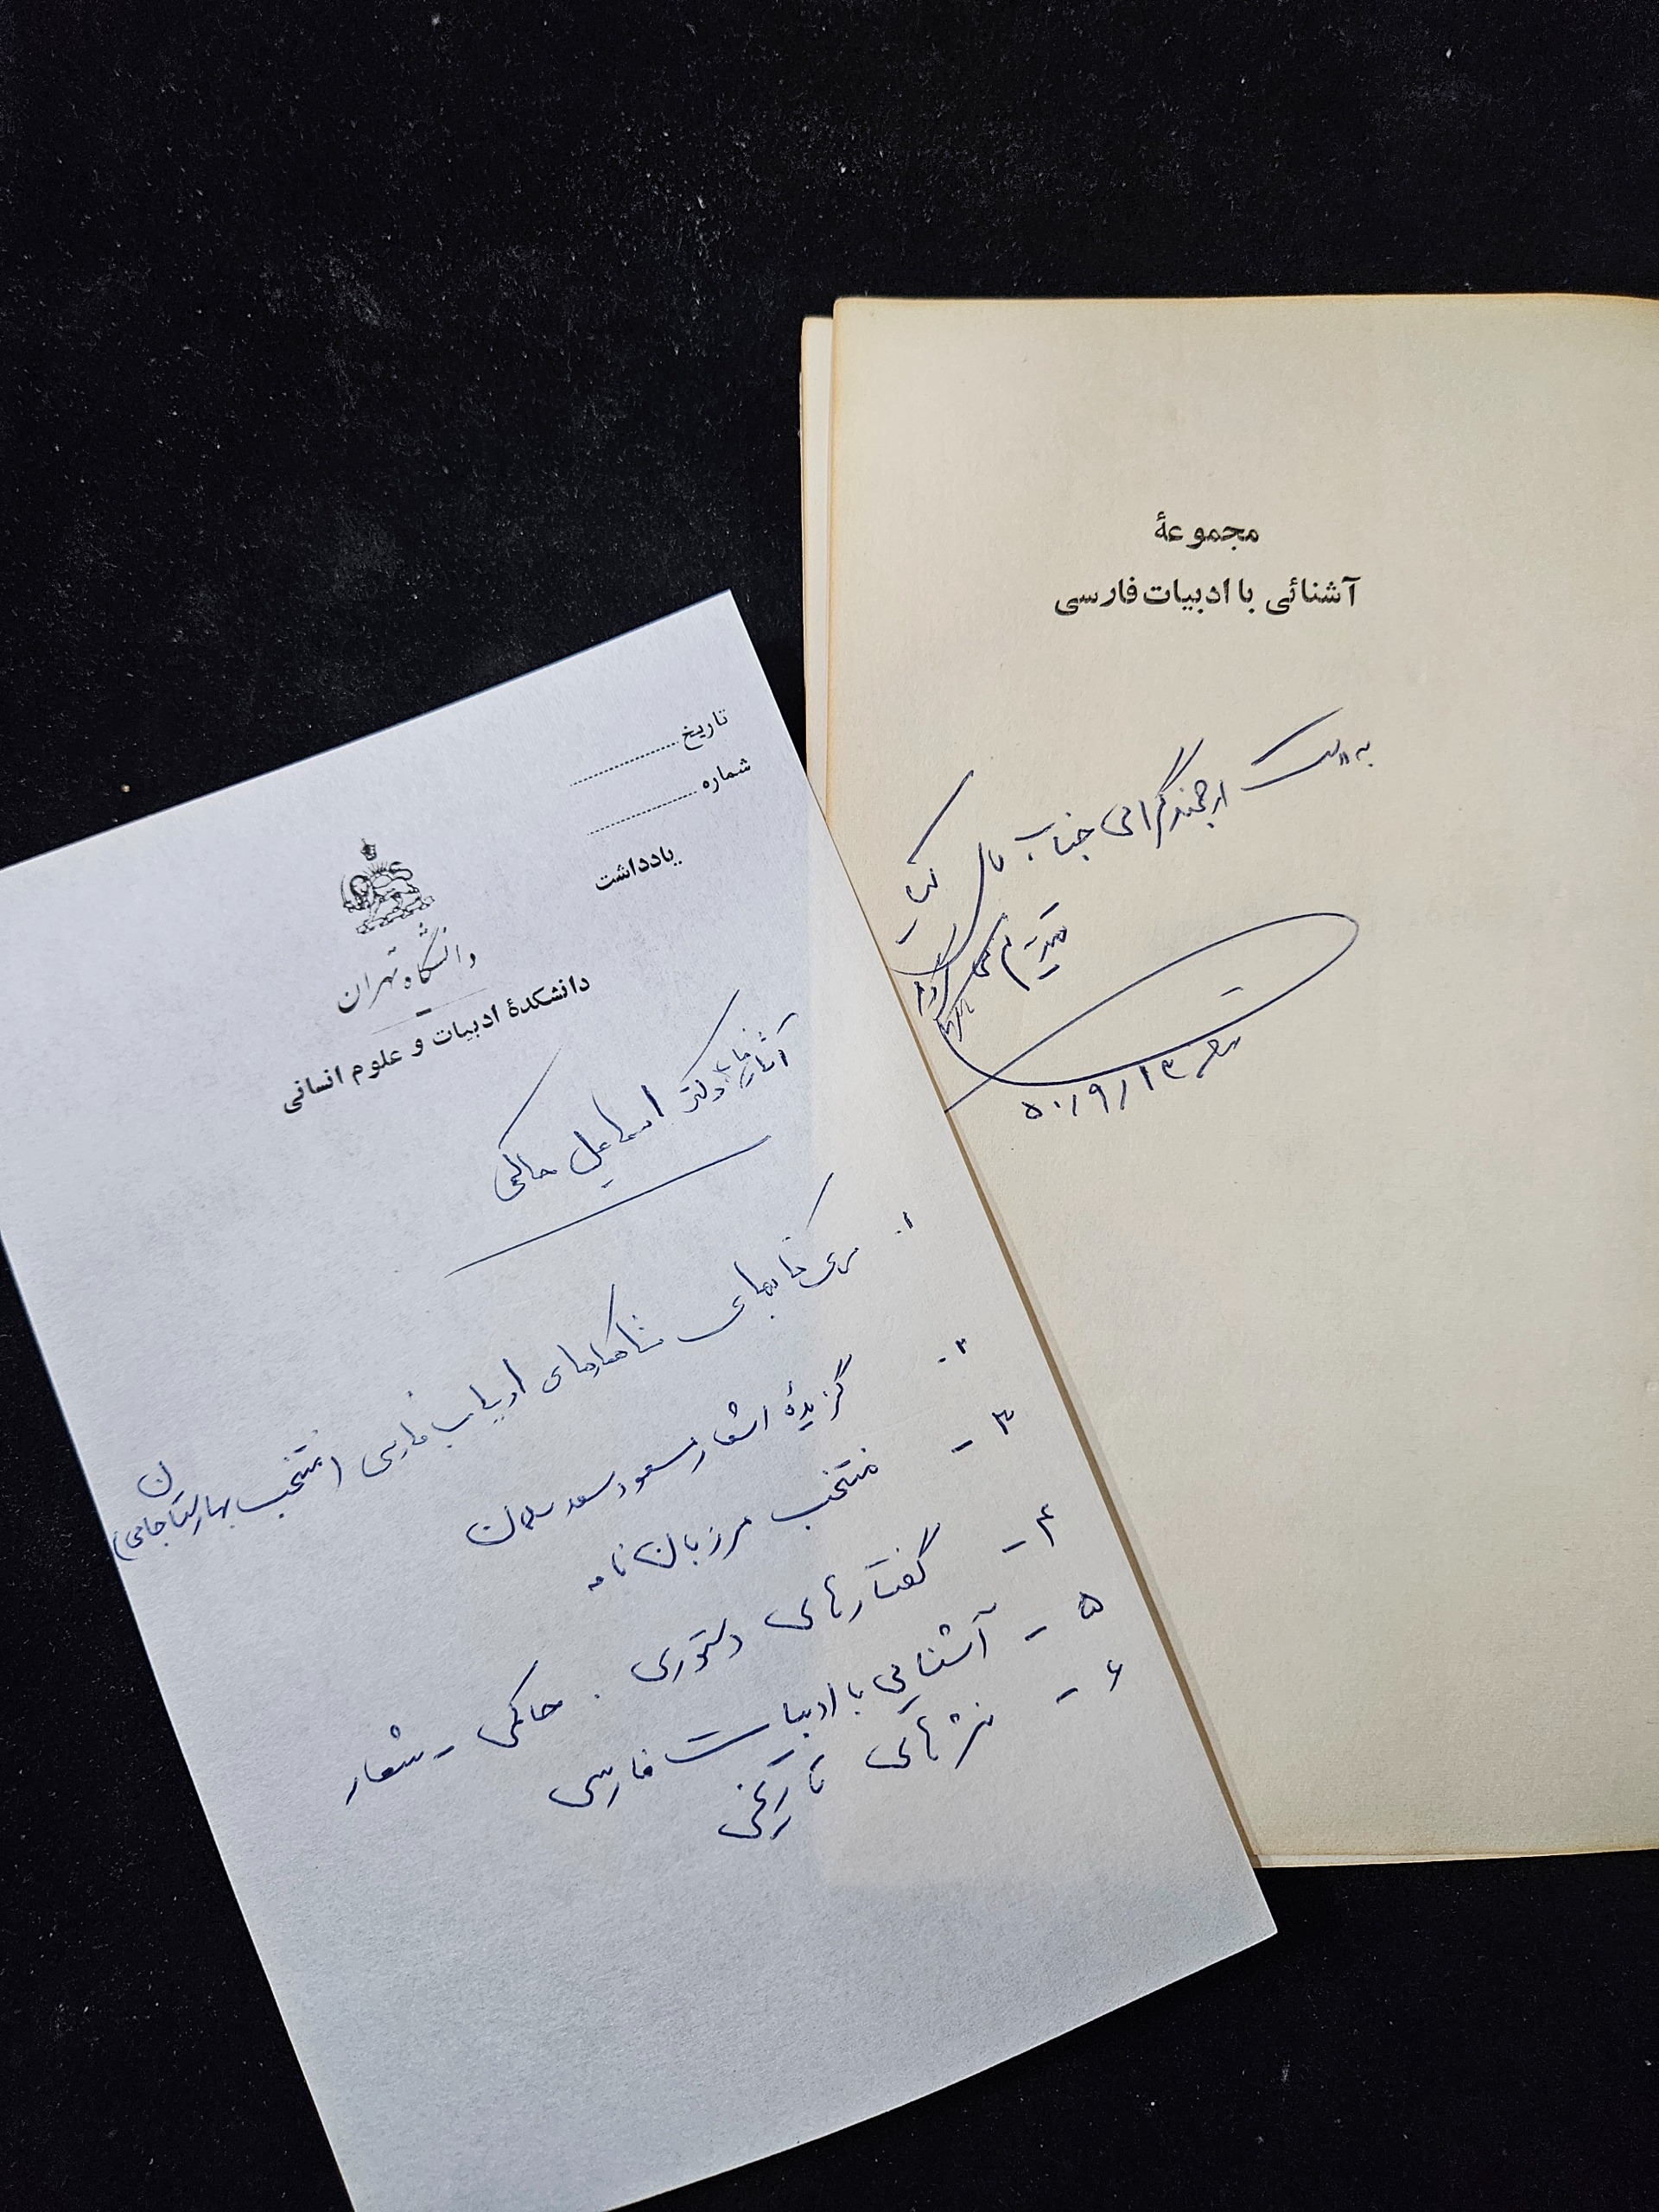 مجموعهٔ
آشنائی با ادبیات فارسی
به دوست ارجمند گرامی جناب
تقدیم
۵۰/۹/۱۳
تاریخ
شماره
یادداشت
دانشگاه تهران
دانشکدهٔ ادبیات و علوم انسانی
آثار دکتر اسماعیل حاکمی
۱- سری کتابهای شاهکارهای ادبیات فارسی (منتخب بهارستان جامی)
۲- گزیدهٔ اشعار مسعود سعد سلمان
۳- منتخب مرزبان نامه
۴- گفتارهای دستوری . حاکمی - شعار
۵- آشنایی با ادبیات فارسی
۶- نثرهای تاریخی